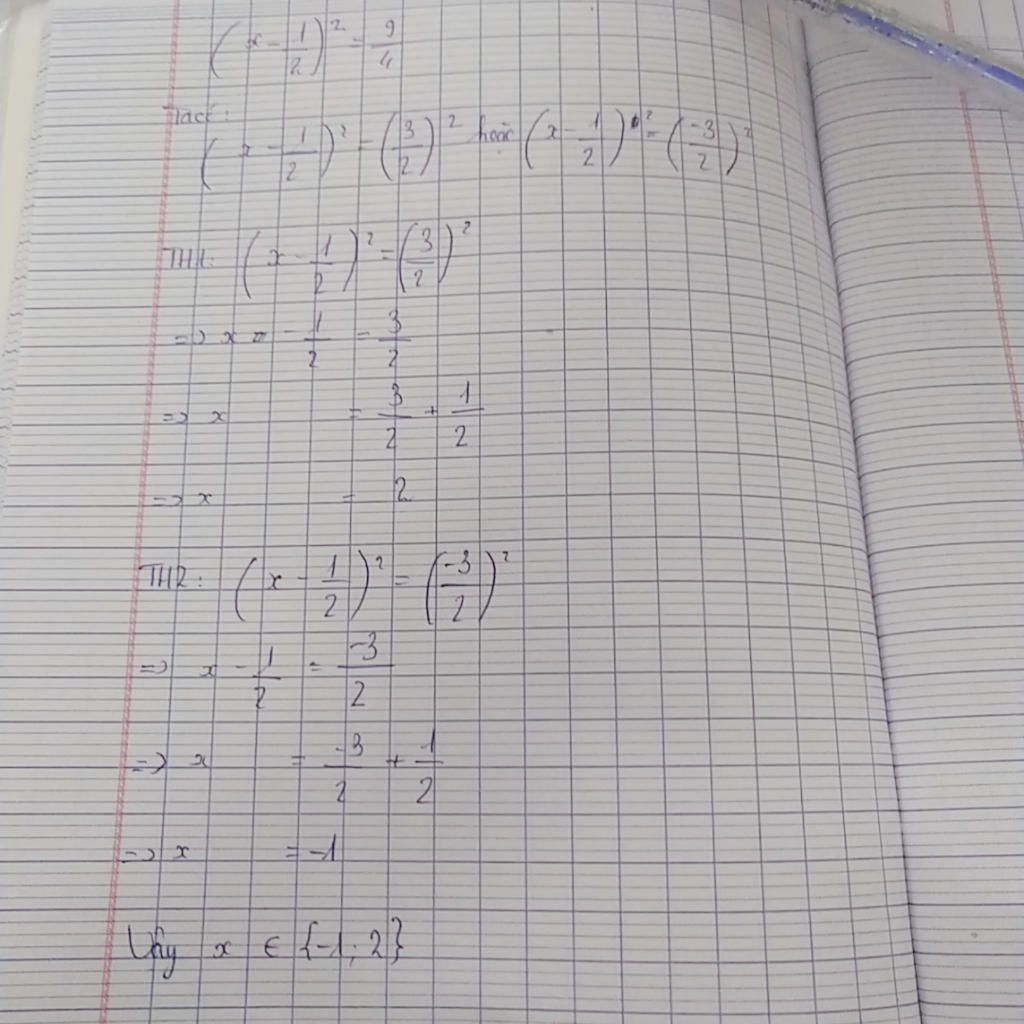 (x - 1/2)² = 9/4
Ta có:
(x - 1/2)² = (3/2)² hoặc (x - 1/2)² = (-3/2)²
TH1: (x - 1/2)² = (3/2)²
=> x - 1/2 = 3/2
=> x = 3/2 + 1/2
=> x = 2
TH2: (x - 1/2)² = (-3/2)²
=> x - 1/2 = -3/2
=> x = -3/2 + 1/2
=> x = -1
Vậy x ∈ {-1; 2}